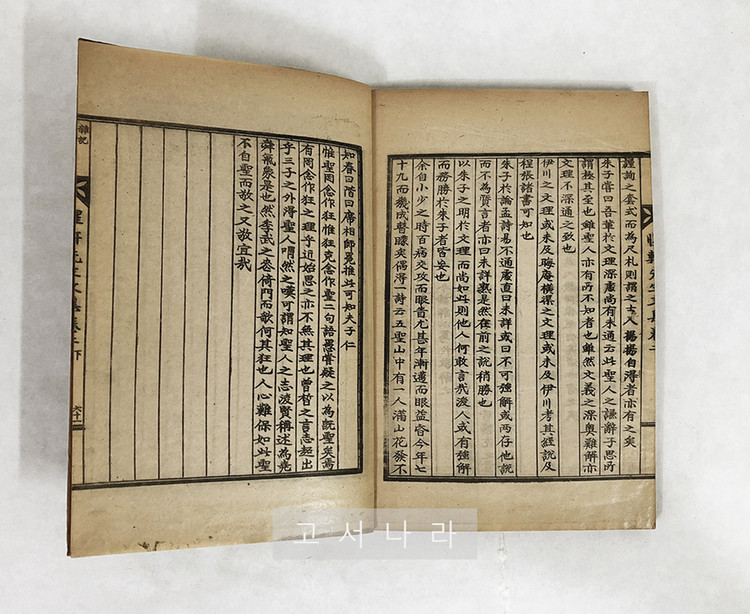 謹詢之套式而為尺札則謂之古人揚揚自得者亦有之矣
朱子嘗曰吾輩於文理深處尚有未通云此聖人之謙辭子思所
謂極其至也雖聖人亦有所不知者也雖然文義之深奧難解亦
文理不深通之致也
伊川之文理或未及晦庵橫渠之文理或未及伊川考其經說及
程張諸書可知也
朱子於論孟詩易不通處直曰未詳或曰不可強解或两存他說
而不為贅言者亦曰未詳孰是然在前之說稍勝也
以朱子之明於文理而尚如此則他人何敢言哉後人或有強解
而務勝於朱子者皆妄也
余自小少之時百病交攻而眼昏尤甚年漸邁而眼益昏今年七
十九而幾成瞽矇矣偶得一詩云五聖山中有一人滿山花發不
知春曰階曰席相師冕推此可知夫子仁
惟聖罔念作狂惟狂克念作聖二句語甞疑之以為既聖矣焉
有罔念作狂之理乎近始思之亦不無其理也曾晳之言志超出
乎三子之外得聖人喟然之嘆可謂知聖人之志後賢稱述為堯
舜氣象是也然季武之丧倚門而歌何其狂也人心難保如此聖
不自聖而故之又故宜哉
雜記
軒先生文集卷之下
六十一
고서나라